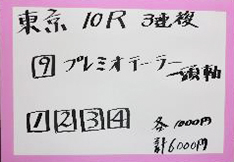 東京 10R 3連複
9 プレミオテーラー
一頭軸
1 2 3 4 各1000円
計6000円